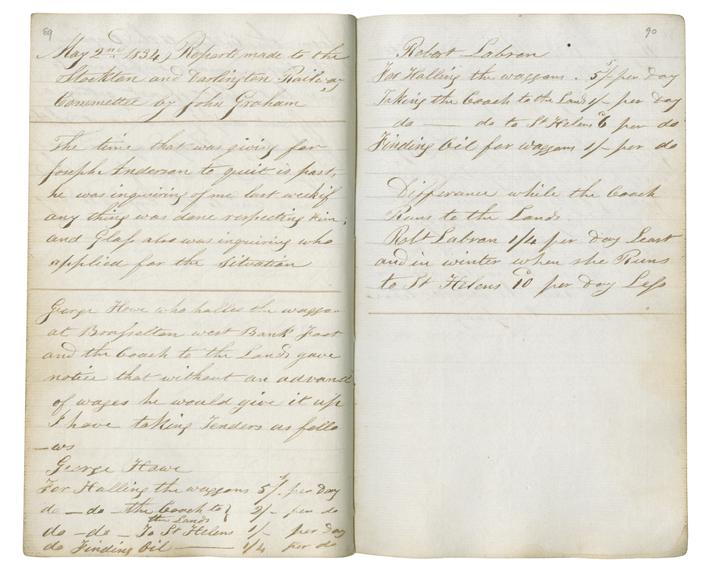 89
May 2nd 1834, Reports made to the
Stockton and Darlington Railway
Committee by John Graham
The time that was giving for
Joseph Anderson to quit is past,
he was inquiring of me last week if
any thing was done respecting him,
and Glass also was inquiring who
applied for the situation
George Hawe who halles the waggons
at Brasselton west Bank foot
and the Coach to the Lands gave
notice that without an advance
of wages he would give it up
I have taking Tenders as follo
-ws
George Hawe
For Halling the waggons 5/- per Day
do - do - the Coach to } 2/- per do
the Lands
do - do - To St Helens 1/- per Day
do Finding Oil - 1/4 per do
90
Robert Labran
For Halling the waggons . 5/- per day
Taking the Coach to the Lands 1/- per day
do - do to St Helens 6 per do
Finding Oil for waggons 1/- per do
Differance while the Coach
Runs to the Lands
Robt Labran 1/4 per day Least
and in winter when she Runs
to St Helens 10 per day Less